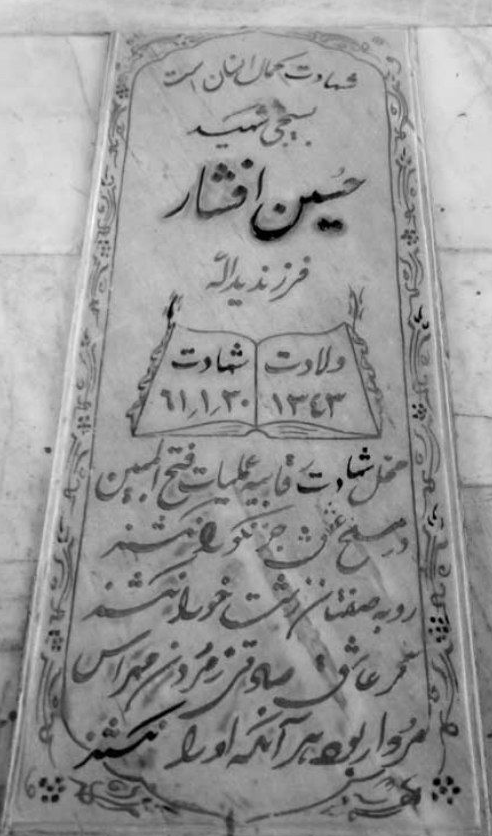 شهادت کمال انسان است
بسیجی شهید
حسین افشار
فرزند یداله
ولادت شهادت
۱۳٤۳ ۶۱٫۱٫۳۰
محل شهادت رقابیه عملیات فتح المبین
در مسلخ عشق جز نکو را نکشند
روبه صفتان زشت خو را نکشند
گر عاشق صادقی ز مردن مهراس
مردار بود هر آنکه او را نکشند